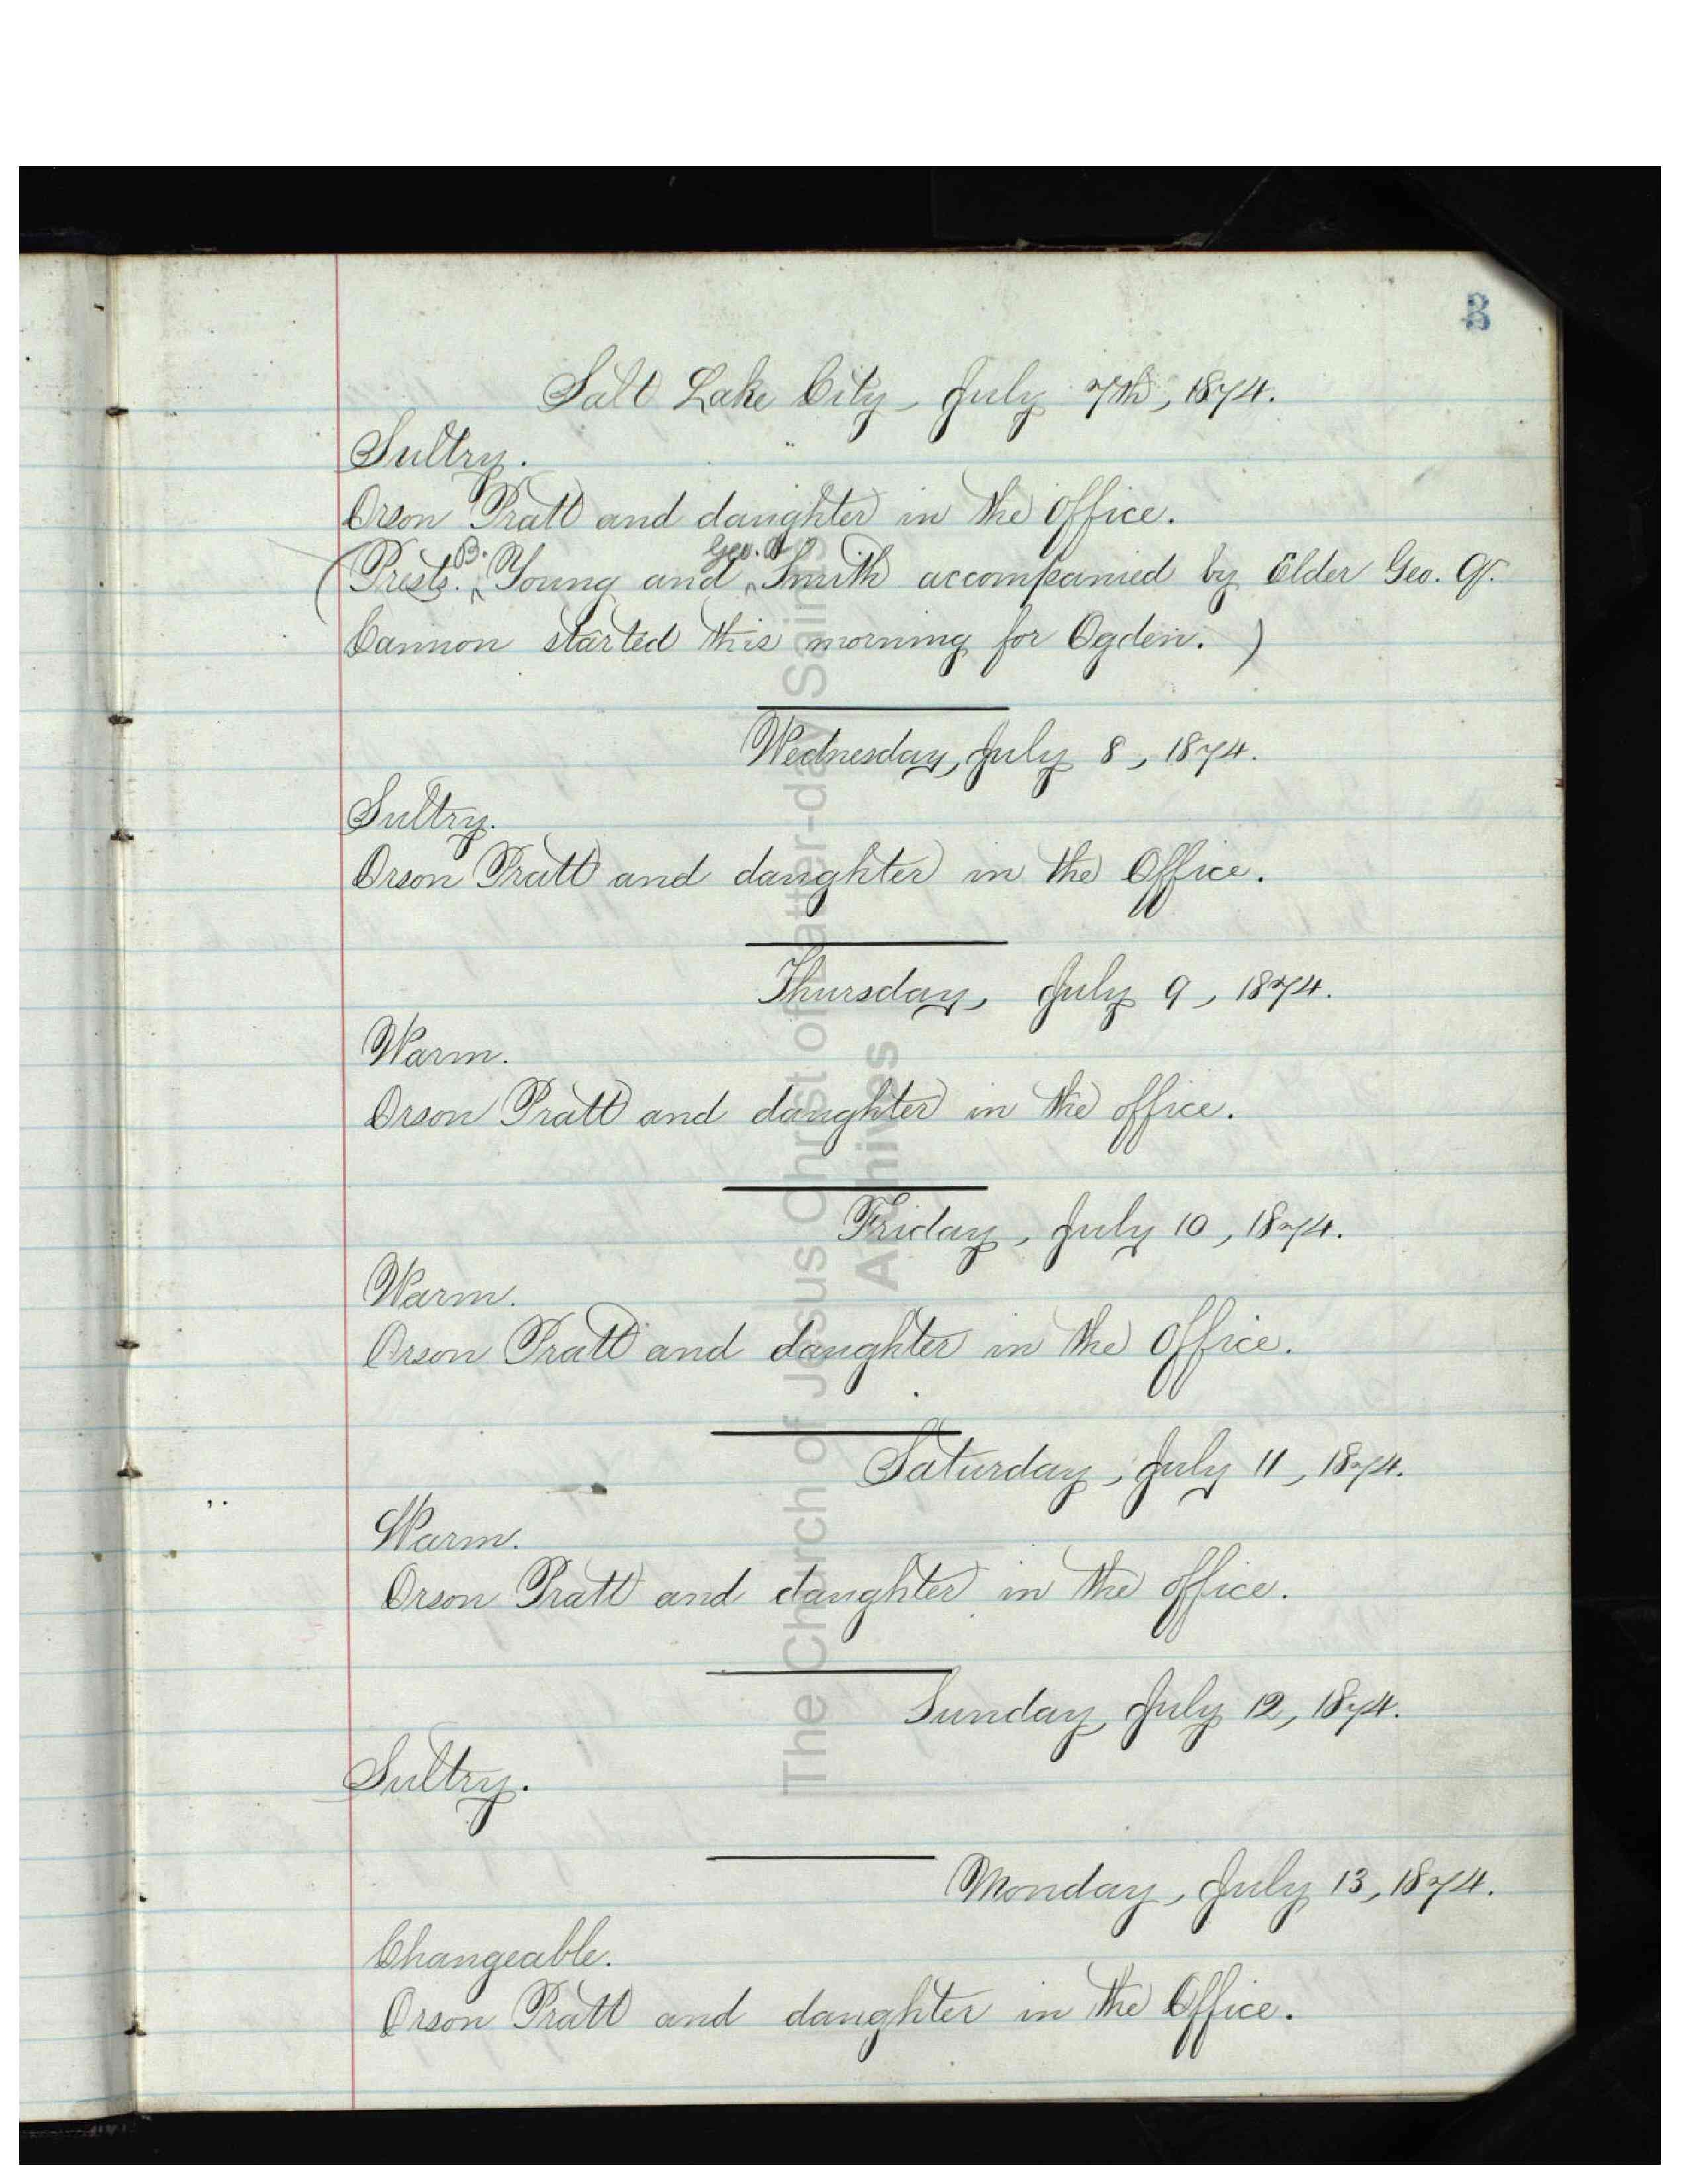 3
Salt Lake City, July 7th, 1874.
Sultry.
Orson Pratt and daughter in the office.
(Prests. B. Young and Geo. A. Smith accompanied by Elder Geo. Q.
Cannon started this morning for Ogden. )
Wednesday, July 8, 1874.
Sultry.
Orson Pratt and daughter in the Office.
Thursday, July 9, 1874.
Warm.
Orson Pratt and daughter in the office.
Friday, July 10, 1874.
Warm.
Orson Pratt and daughter in the office.
Saturday, July 11, 1874.
Warm.
Orson Pratt and daughter in the office.
Sunday, July 12, 1874.
Sultry.
Monday, July 13, 1874.
Changeable.
Orson Pratt and daughter in the Office.
The Church of Jesus Christ of Latter-day Saints
Archives